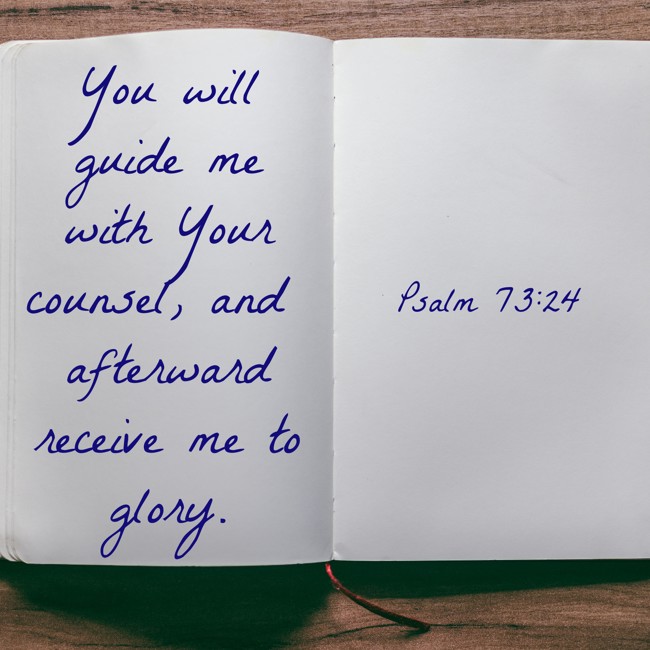 You will
guide me
with Your
counsel, and
afterward
receive me to
glory.
Psalm 73:24